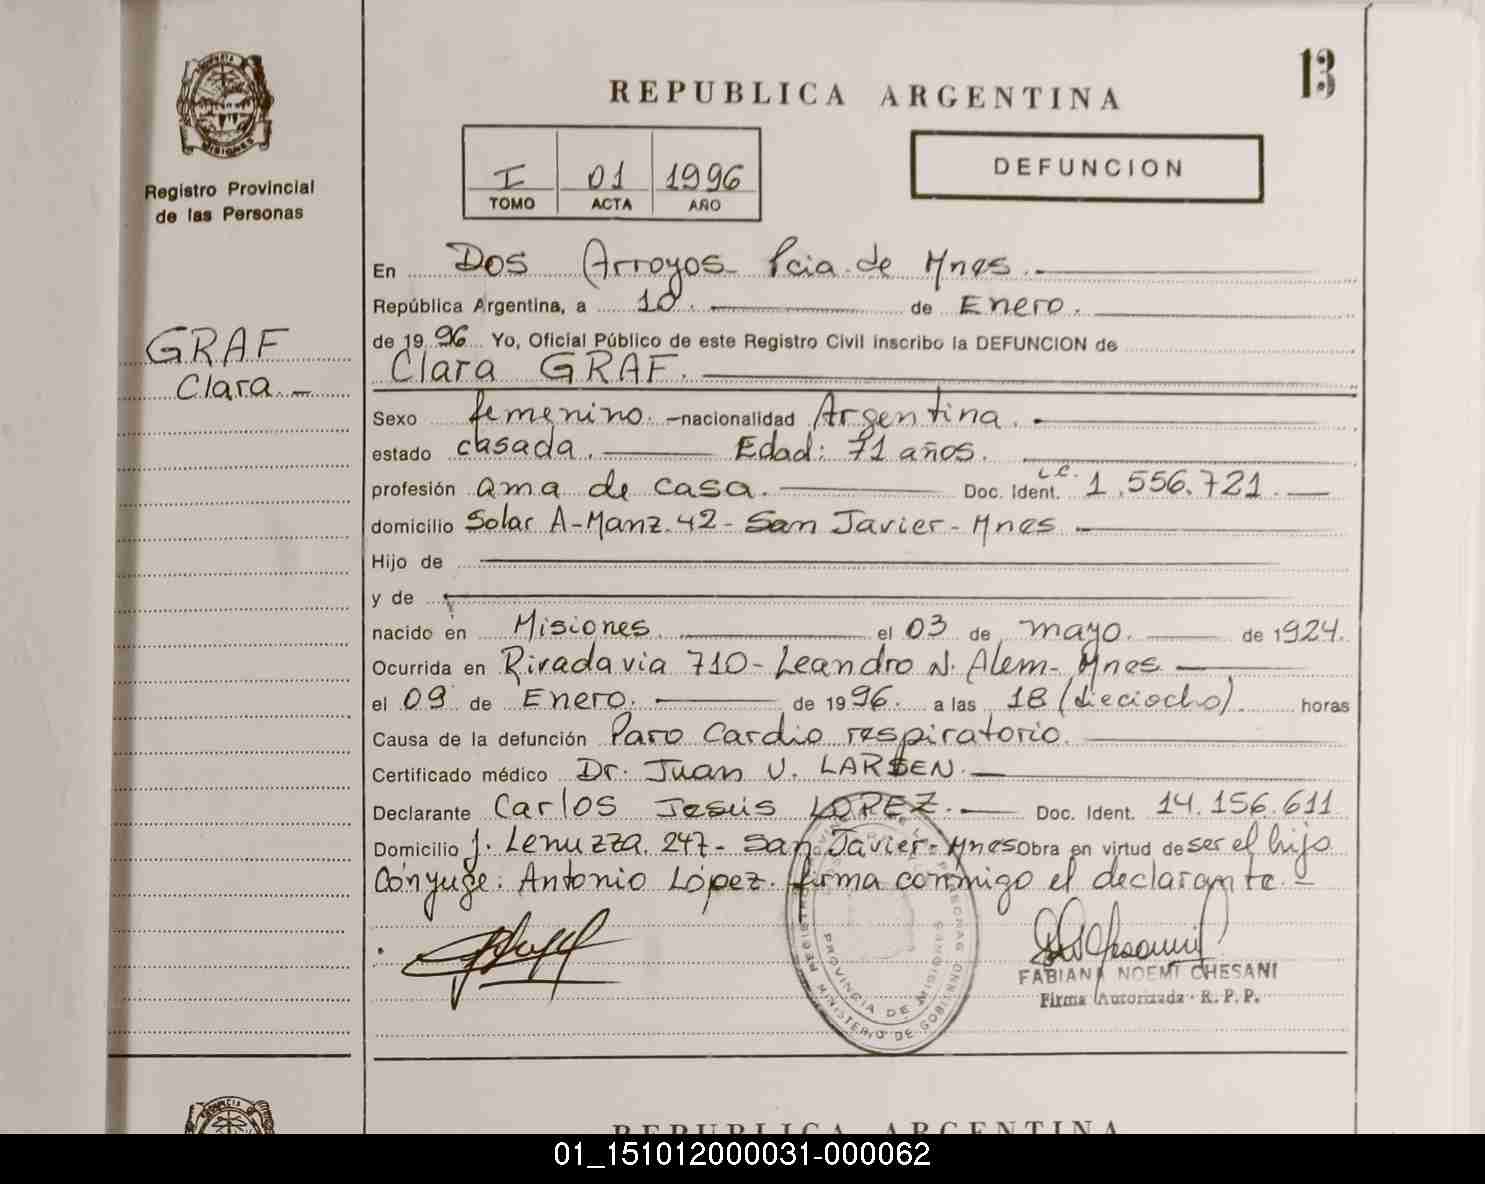 13
REPUBLICA ARGENTINA
PROVINCIA
MISIONES
Registro Provincial
de las Personas
I 01 1996
TOMO ACTA AÑO
DEFUNCION
GRAF
Clara.-
En Dos Arroyos Pcia. de Mnes.
República Argentina, a 10. de Enero.
de 1996 Yo, Oficial Público de este Registro Civil inscribo la DEFUNCION de
Clara GRAF.
Sexo femenino. -nacionalidad Argentina.
estado casada. Edad: 71 años.
profesión ama de casa. Doc. Ident. L.C. 1.556.721.
domicilio Solar A-Manz. 42- San Javier- Mnes.
Hijo de
y de
nacido en Misiones. el 03 de mayo. de 1924.
Ocurrida en Rivadavia 710- Leandro N. Alem- Mnes
el 09 de Enero. de 1996. a las 18 (dieciocho). horas
Causa de la defunción Paro Cardio respiratorio.
Certificado médico Dr. Juan V. LARSEN.
Declarante Carlos Jesús LOPEZ. Doc. Ident. 14.156.611
Domicilio J. Lenuzza. 247- San Javier- Mnes Obra en virtud de ser el hijo
Cónyuge: Antonio López. firma conmigo el declarante.-
PROVINCIA DE MISIONES
MINISTERIO DE GOBIERNO
FABIANA NOEMI CHESANI
Firma Autorizada - R. P. P.
REPUBLICA ARGENTINA
01_151012000031-000062